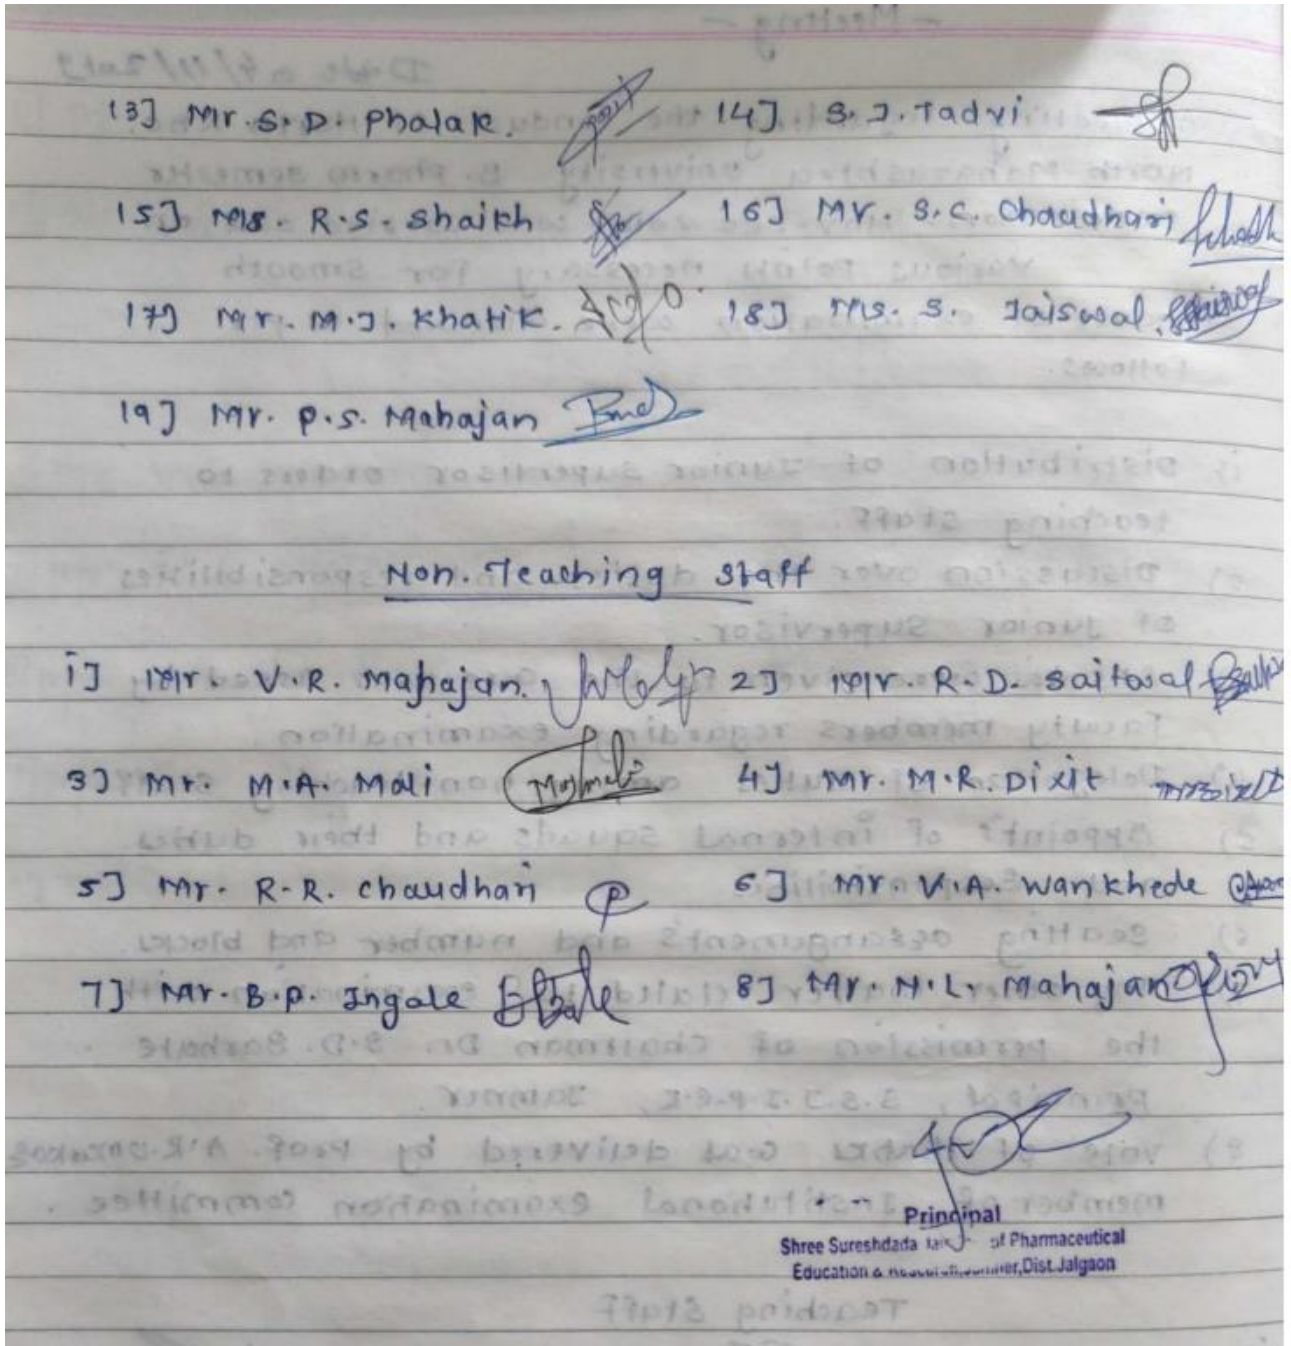 13] Mr. S. D. Phalak. 14] S. J. Tadvi
15] Ms. R. S. Shaikh 16] Mr. S. C. Chaudhari
17] Mr. M. J. Khatik. 18] Ms. S. Jaiswal.
19] Mr. P. S. Mahajan
Non. Teaching Staff
1] Mr. V. R. Mahajan. 2] Mr. R. D. Saitwal
3] Mr. M. A. Mali 4] Mr. M. R. Dixit
5] Mr. R. R. Chaudhari 6] Mr. V. A. Wankhede
7] Mr. B. P. Ingale 8] Mr. N. L. Mahajan
Principal
Shree Sureshdada of Pharmaceutical
Education & Dist. Jalgaon